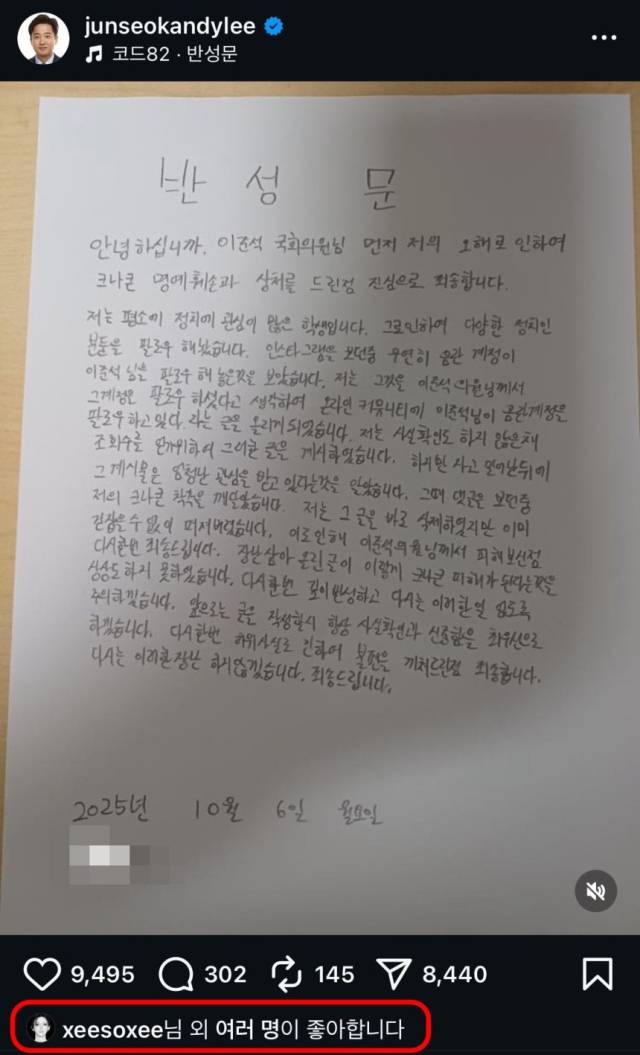 junseokandylee
코드82 · 반성문
반 성 문
안녕하십니까, 이준석 국회의원님 먼저 저의 오해로 인하여
크나큰 명예훼손과 상처를 드린점 진심으로 죄송합니다.
저는 평소에 정치에 관심이 많은 학생입니다. 그로인하여 다양한 정치인
분들을 팔로우 해놨습니다. 인스타그램을 보던중 우연히 음란 계정이
이준석 님을 팔로우 해 놓은것을 보았습니다. 저는 그것을 이준석 의원님께서
그계정을 팔로우 하셨다고 생각하여 온라인 커뮤니티에 이준석님이 음란계정을
팔로우 하고있다. 라는 글을 올리게 되었습니다. 저는 사실확인도 하지 않은채
조회수를 얻기위하여 그러한 글을 게시하였습니다. 하지만 자고 일어난뒤에
그 게시물은 엄청난 관심을 받고 있다는것을 알았습니다. 그때 댓글을 보던중
저의 크나큰 착각을 깨달았습니다. 저는 그 글을 바로 삭제하였지만 이미
걷잡을 수 없이 퍼져버렸습니다. 이로인해 이준석의원님께서 피해보신점
다시한번 죄송드립니다. 장난삼아 올린글이 이렇게 크나큰 피해가 된다는것을
상상도 하지 못하였습니다. 다시한번 깊이반성하고 다시는 이러한일 없도록
주의하겠습니다. 앞으로는 글을 작성할시 항상 사실확인과 신중함을 최우선으로
하겠습니다. 다시한번 허위사실로 인하여 불편을 끼쳐드린점 죄송합니다.
다시는 이러한장난 하지않겠습니다. 죄송드립니다.
2025년 10월 6일 월요일
9,495 302 145 8,440
xeesoxee님 외 여러 명이 좋아합니다